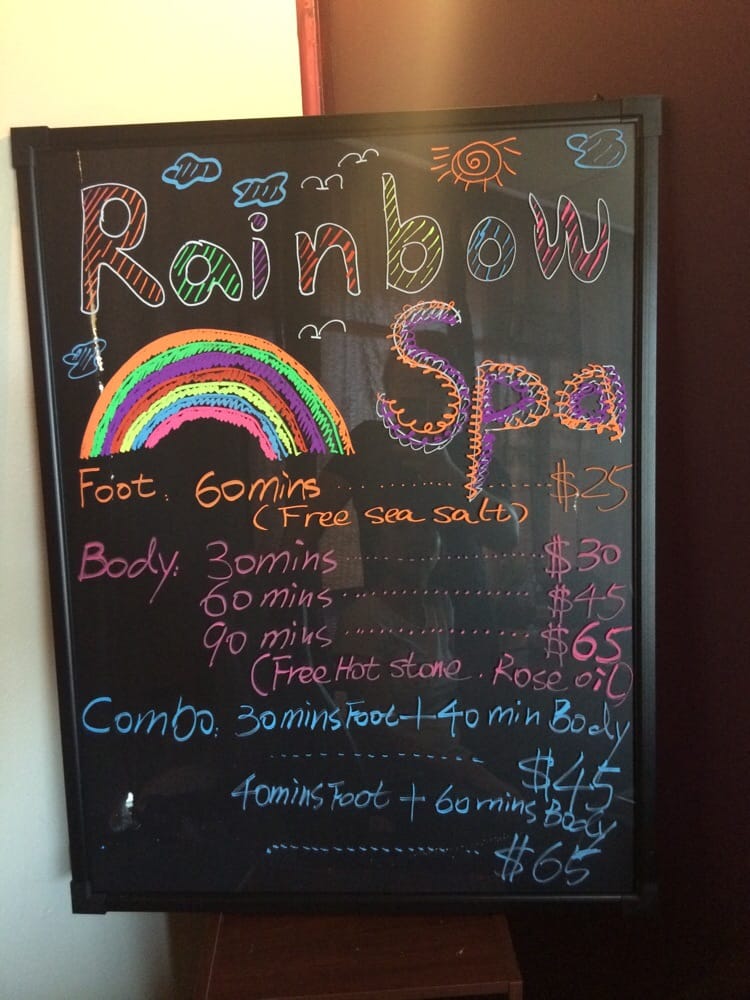 Rainbow
Spa
Foot: 60mins ............ $25
(Free sea salt)
Body: 30mins ............ $30
60 mins ............ $45
90 mins ............ $65
(Free Hot stone. Rose oil)
Combo: 30minsFoot+40min Body
............ $45
40minsFoot + 60mins Body
............ $65